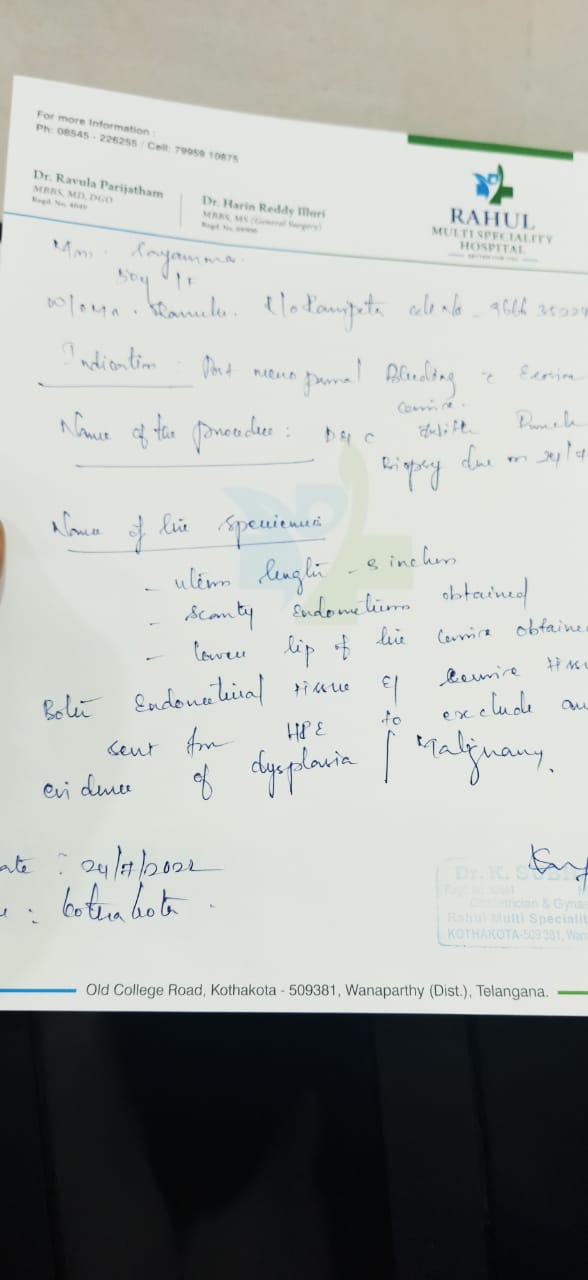 For more Information :
Ph: 08545 - 226255 / Cell: 79959 10875
Dr. Ravula Parijatham
MBBS, MD, DGO
Regd. No.
Dr. Harin Reddy Illuri
MBBS, MS (General Surgery)
Regd. No.
RAHUL
MULTI SPECIALITY
HOSPITAL
50y / F
W/o Mr. Ramulu. R/o Rampeta cell No - 9666 35
Indication : Post meno pausal Bleeding
Cervix.
Name of the procedure : D & C Punch
Biopsy due on 24/
Name of the specimens
- uterus length - 3 inches
- scanty Endometrium obtained
- lower lip of the cervix obtaine
Both Endometrial tissue & cervix tissu
sent for HPE to exclude an
evidence of dysplasia / Malignancy.
ate : 24/7/2022
: Kothakota .
Dr. K. SUB
Regd. No.
Obstetrician & Gyna
Rahul Multi Specialit
KOTHAKOTA-509 381, Wan
Old College Road, Kothakota - 509381, Wanaparthy (Dist.), Telangana.